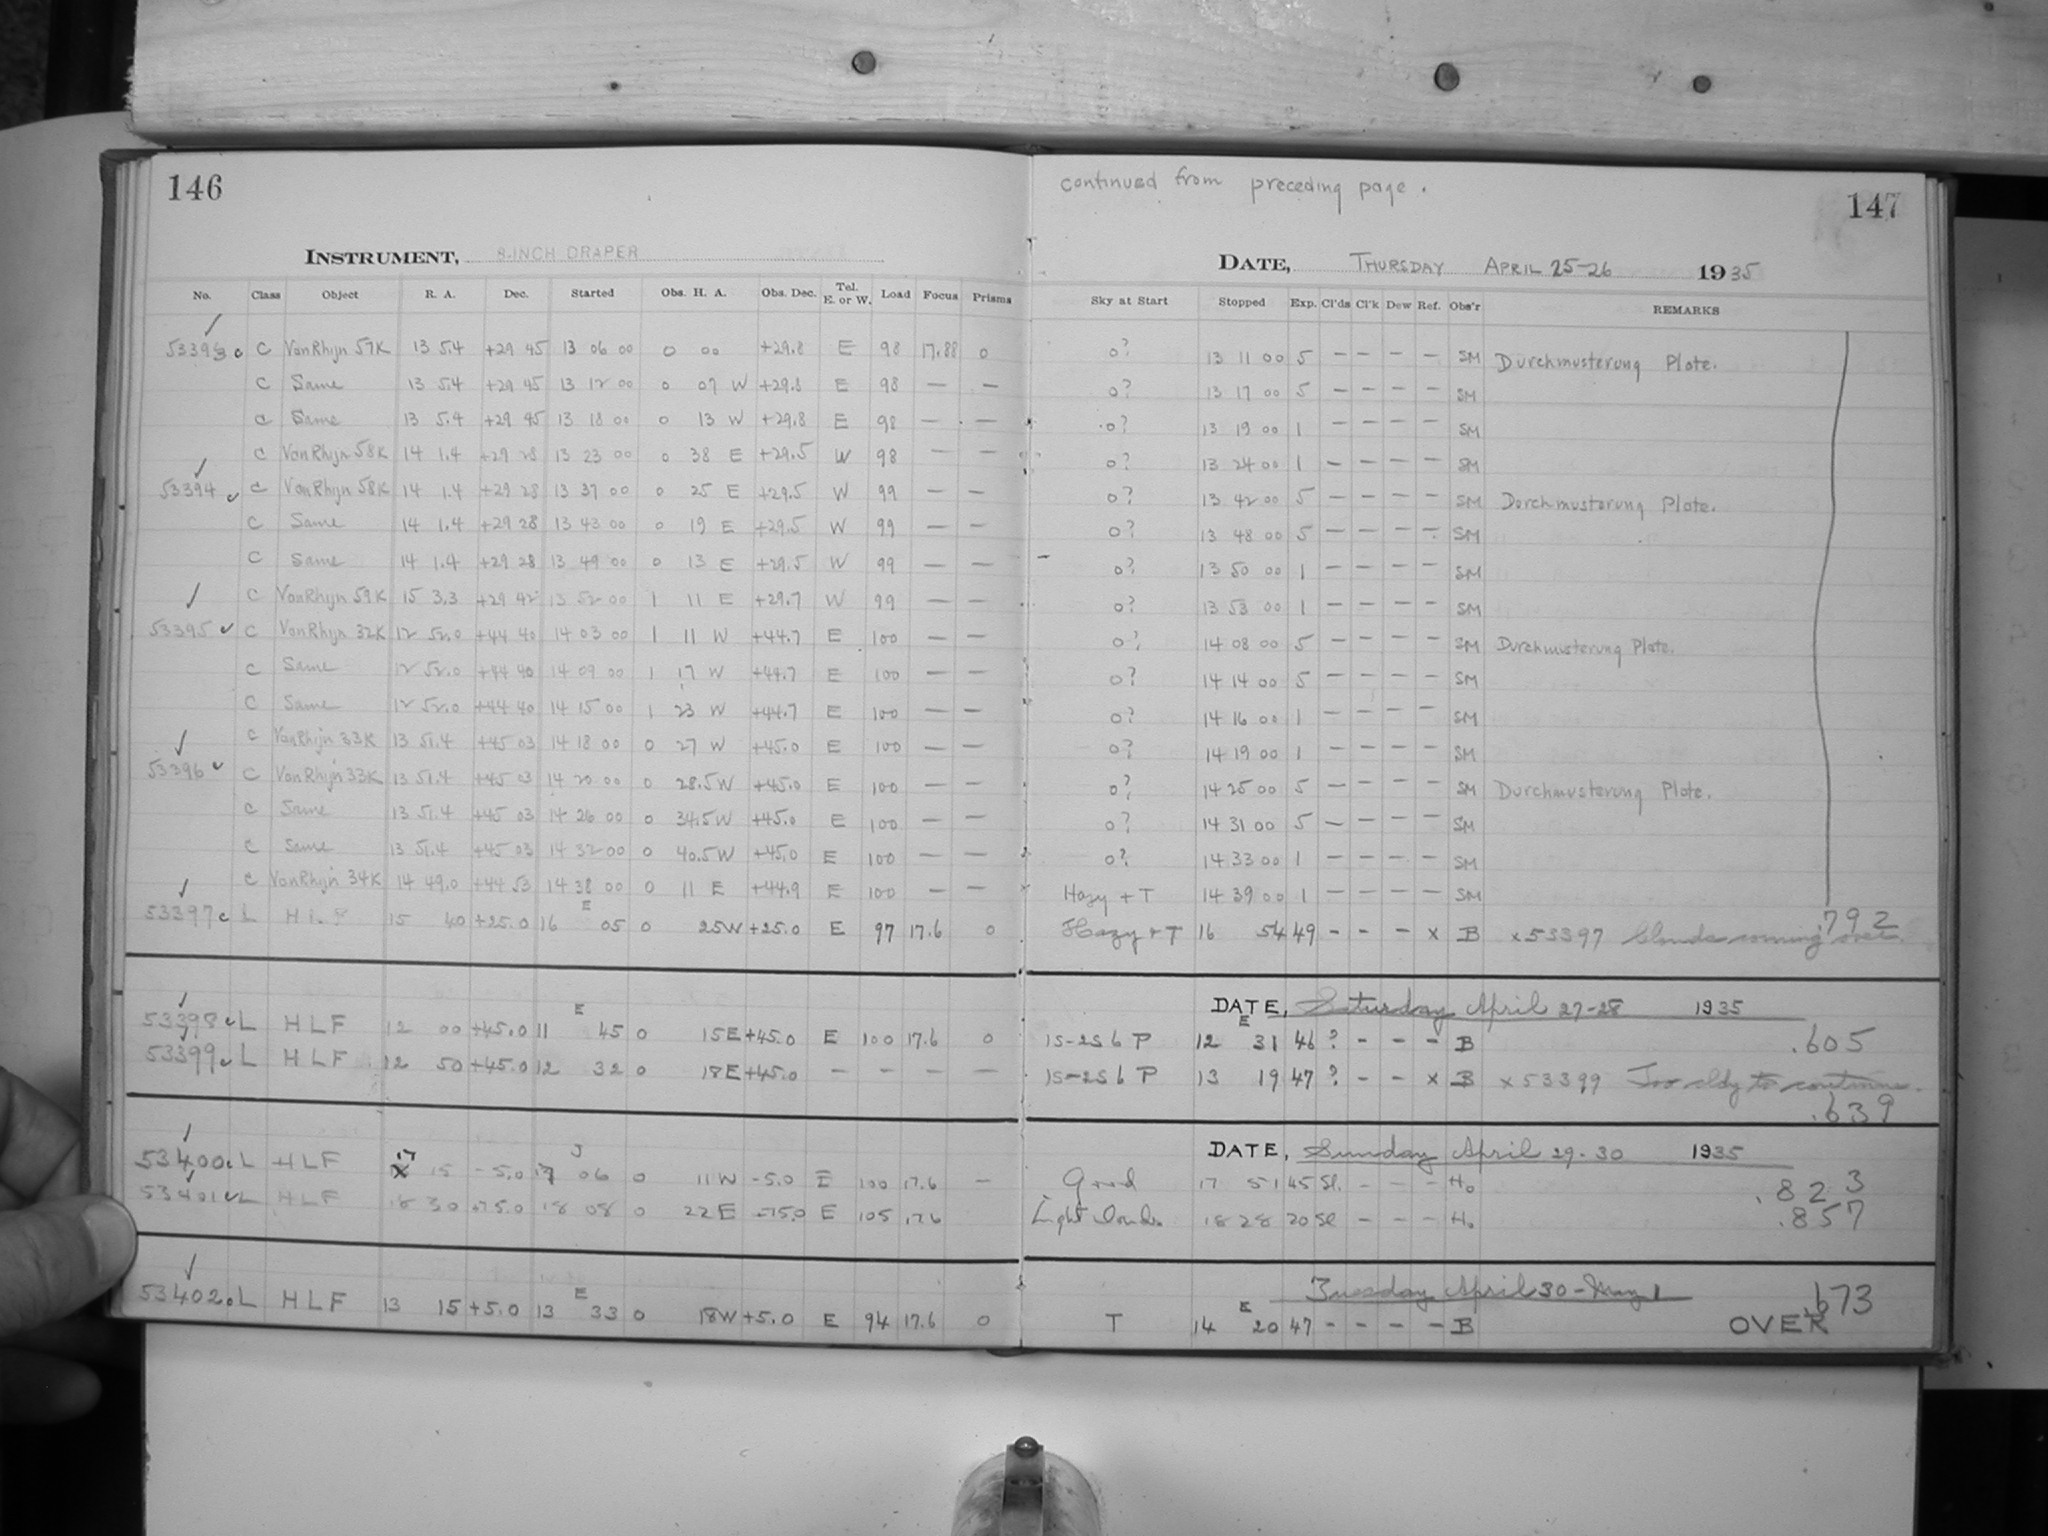 146
INSTRUMENT, 8-INCH DRAPER
No. Class Object R. A. Dec. Started Obs. H. A. Obs. Dec. Tel. E. or W. Load Focus Prisms
53393 C C VanRhijn 57K 13 5.4 +29 45 13 06 00 0 00 +29.8 E 98 17.88 0
C Same 13 5.4 +29 45 13 12 00 0 07 W +29.8 E 98 — —
C Same 13 5.4 +29 45 13 18 00 0 13 W +29.8 E 98 — —
C VanRhijn 58K 14 1.4 +29 28 13 23 00 0 38 E +29.5 W 98 — —
53394 C VanRhijn 58K 14 1.4 +29 28 13 37 00 0 25 E +29.5 W 99 — —
C Same 14 1.4 +29 28 13 43 00 0 19 E +29.5 W 99 — —
C Same 14 1.4 +29 28 13 49 00 0 13 E +29.5 W 99 — —
C VanRhijn 59K 15 3.3 +29 42 13 52 00 1 11 E +29.7 W 99 — —
53395 C VanRhijn 32K 12 52.0 +44 40 14 03 00 1 11 W +44.7 E 100 — —
C Same 12 52.0 +44 40 14 09 00 1 17 W +44.7 E 100 — —
C Same 12 52.0 +44 40 14 15 00 1 23 W +44.7 E 100 — —
C VanRhijn 33K 13 51.4 +45 03 14 18 00 0 27 W +45.0 E 100 — —
53396 C VanRhijn 33K 13 51.4 +45 03 14 20 00 0 28.5 W +45.0 E 100 — —
C Same 13 51.4 +45 03 14 26 00 0 34.5 W +45.0 E 100 — —
C Same 13 51.4 +45 03 14 32 00 0 40.5 W +45.0 E 100 — —
C VanRhijn 34K 14 49.0 +44 53 14 38 00 0 11 E +44.9 E 100 — —
53397 c L 15 40 +25.0 16 E 05 0 25W +25.0 E 97 17.6 0
53398 L HLF 12 00 +45.0 11 E 45 0 15E +45.0 E 100 17.6 0
53399 L HLF 12 50 +45.0 12 32 0 18E +45.0 — — — —
53400 L HLF 17 15 -5.0 17 J 06 0 11W -5.0 E 100 17.6 —
53401 L HLF 18 30 +75.0 18 08 0 22E +75.0 E 105 17.6
53402 L HLF 13 15 +5.0 13 E 33 0 18W +5.0 E 94 17.6 0
continued from preceding page.
147
DATE, THURSDAY APRIL 25-26 1935
Sky at Start Stopped Exp. Cl'ds Cl'k Dew Ref. Obs'r REMARKS
0? 13 11 00 5 — — — — SM Durchmusterung Plate.
0? 13 17 00 5 — — — — SM
0? 13 19 00 1 — — — — SM
0? 13 24 00 1 — — — — SM
0? 13 42 00 5 — — — — SM Dorchmusterung Plate.
0? 13 48 00 5 — — — — SM
0? 13 50 00 1 — — — — SM
0? 13 53 00 1 — — — — SM
0? 14 08 00 5 — — — — SM Durchmusterung Plate.
0? 14 14 00 5 — — — — SM
0? 14 16 00 1 — — — — SM
0? 14 19 00 1 — — — — SM
0? 14 25 00 5 — — — — SM Durchmusterung Plate.
0? 14 31 00 5 — — — — SM
0? 14 33 00 1 — — — — SM
Hazy + T 14 39 00 1 — — — — SM
Hazy + T 16 54 49 - - - x B x 53397 Clouds coming over. .792
DATE, Saturday April 27-28 1935
1s-2s 6 P 12 E 31 46 ? - - - B .605
1s-2s 6 P 13 19 47 ? - - x B x 53399 Too cldy to continue.
.639
DATE, Sunday April 29-30 1935
Good 17 51 45 Sl. - - - Ho .823
Light clouds 18 28 20 Sl - - - Ho .857
Tuesday April 30 - May 1 .673
T 14 E 20 47 - - - - B OVER